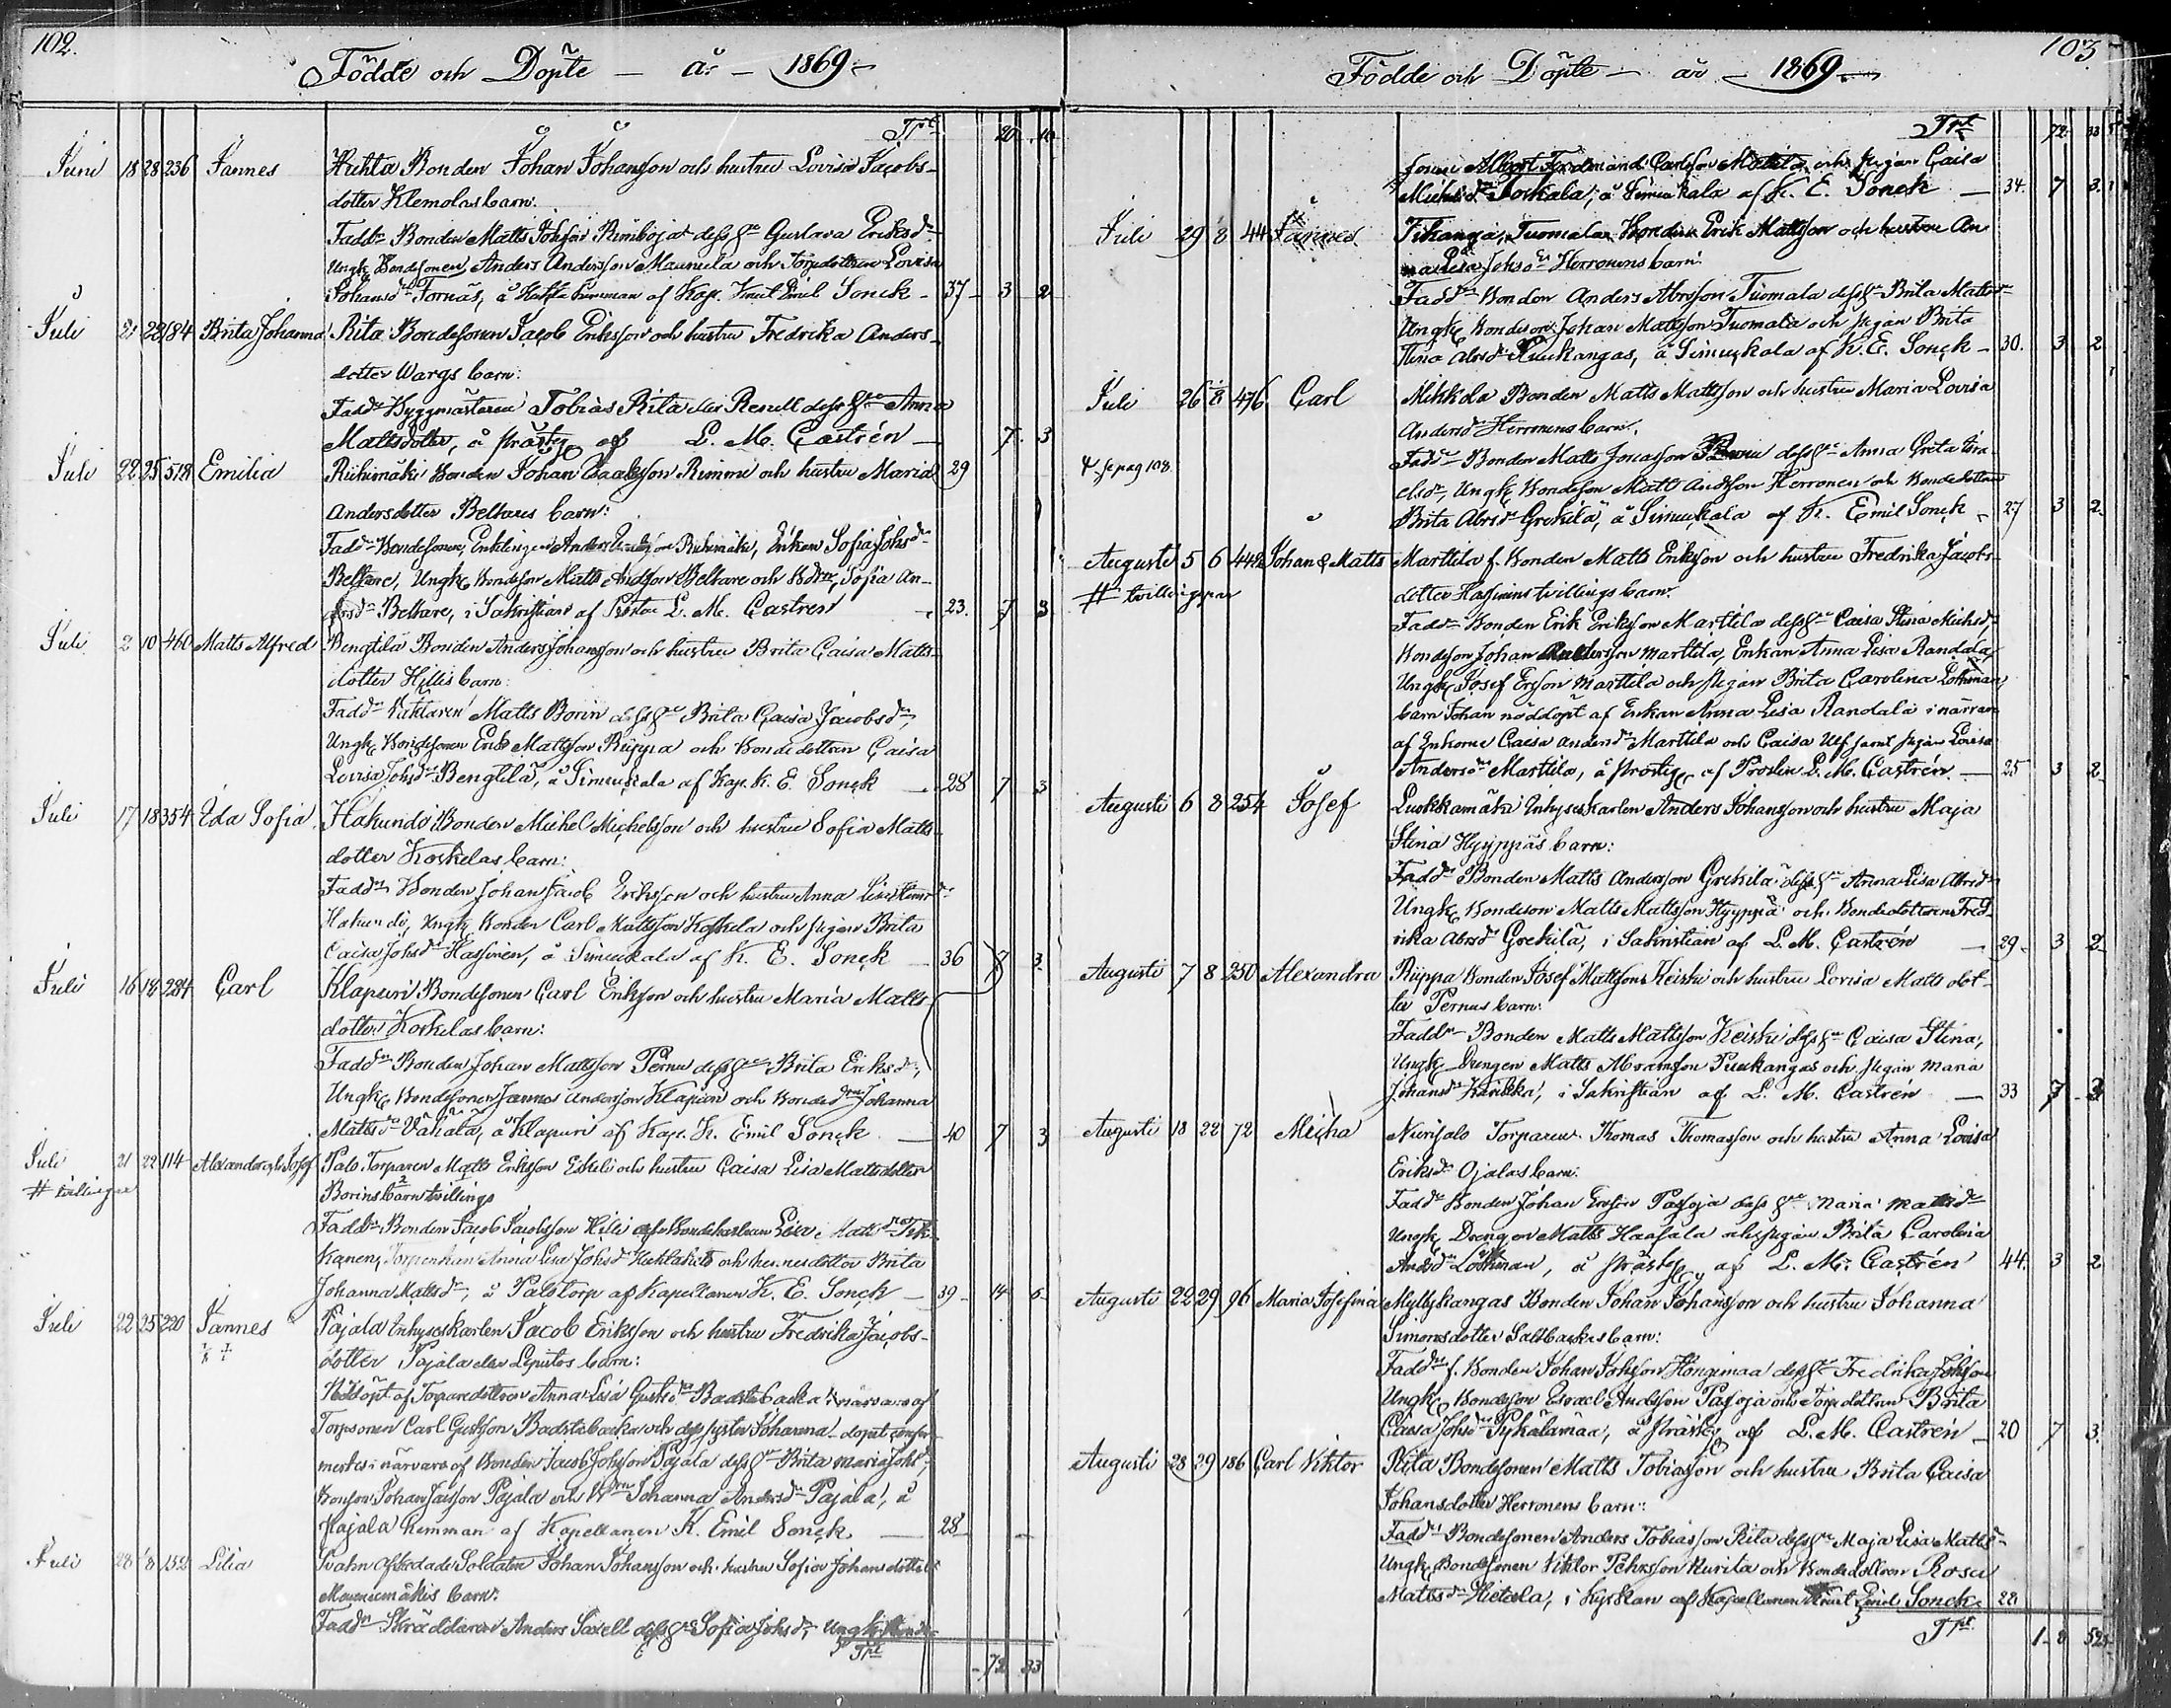 102.
Födde och Döpte — år — 1869 —
Trpt 20 10
Juni 18 28 236 Jannes Huhta Bonden Johan Johansson och hustru Lovisa Jacobs-
dotter Klemolas barn:
Fadd:r Bonden Matts Johsson dess h:u Gustava Eriksd:r
Ungk. Bondesonen Anders Andersson Maunula och Lovisa
Johansd:r Tornäs, å hemman af Kap. Knut Emil Sonck — 37 3 2
Juli 21 22 184 Brita Johanna Rita Bondesonen Jacob Eriksson och hustru Fredrika Anders-
dotter Wargs barn:
Fadd:r Byggmästaren Tobias Rita eller Renell dess h:u Anna
Mattsdotter, å prästg. af L. M. Castrén — 7 3
Juli 22 25 518 Emilia Riihimäki Bonden Johan Isaaksson Rimmi och hustru Maria 29
Andersdotter Beltares barn:
Fadd:r Bondesonen, Enklingen Anders Riihimäki, Enkan Sofia Johsd:r
Beltare, Ungk. Bondeson Matts Andsson Beltare och Sofia An-
dersd:r Beltare, i Sakristian af Prosten L. M. Castren 23. 7 3
Juli 2 10 460 Matts Alfred Bengtilä Bonden Anders Johansson och hustru Brita Caisa Matts-
dotter Hillis barn:
Fadd:r Matts Borin dess h:u Brita Caisa Jacobsd:r,
Ungk. Bondesonen Erik Mattsson Riippa och Bondedottren Caisa
Lovisa Johsd:r Bengtilä, å Simunkala af Kap. K. E. Sonck — 28 7 3
Juli 17 18 354 Ida Sofia Hakundi Bonden Michel Michelsson och hustru Sofia Matts-
dotter Koskelas barn:
Fadd:r Bonden Johan Jacob Eriksson och hustru Anna
Hakundi, Ungk. Bonden Carl Mattsson Koskela och pigan Brita
Caisa Johsd:r Hassinen, å Simunkala af K. E. Sonck — 36 7 3
Juli 16 18 284 Carl Klapuri Bondesonen Carl Eriksson och hustru Maria Matts-
dotter Koskelas barn:
Fadd:r Bonden Johan Mattsson Pernu dess h:u Brita Eriksd:r,
Ungk. Bondesonen Jannes Andersson Klapuri och Johanna
Mattsd:r Vähälä, å Klapuri af Kap. K. Emil Sonck — 40 7 3
Juli 21 22 114 Alexander & Josef Palo Torparen Matts Eriksson Eskeli och hustru Caisa Lisa Mattsdotter
# tvillingar Borins 2 barn tvillings
Fadd:r Bonden Jacob Jacobsson Hilli
Torpenkan Anna Lisa Johsd:r och Brita
Johanna Mattsd:r, å Palotorp af Kapellanen K. E. Sonck — 39 14 6
Juli 22 25 220 Jannes Pajala Inhyseskarlen Jacob Eriksson och hustru Fredrika Jacobs-
dotter Pajala eller Lepistös barn:
Nöddöpt af Torparedottren Anna Lisa Gustsd:r Badstubacka i närvaro af
Torpsonen Carl Gustsson Badstubacka och dess syster Johanna. dopet confir-
merades i närvaro af Bonden Jacob Johsson Pajala dess h:u Brita Maria
Johan Pajala och Johanna Andersd:r Pajala, å
Pajala hemman af Kapellanen K. Emil Sonck — 28
Juli 28 8 152 Lilia Svahn afskedade Soldaten Johan Johansson och hustru Sofia Johansdotter
barn:
Fadd:r Skräddaren Anders Saxell dess h:u Sofia Johsd:r, Ungk.
Trpt 72 33
103
Födde och Döpte — år — 1869 —
Trpt 72 33
sonen Albert Ferdinand Carlsson Mattila och pigan Caisa
Michelsd:r Torkala, å Simunkala af K. E. Sonck — 34. 7 3
Juli 29 8 44 Jannes Tikanoja, Tuomala Bonden Erik Mattsson och hustru An-
na Lisa Johsd:r Herronens barn:
Fadd:r Bonden Anders Abrsson Tuomala dess h:u Brita Mattsd:r
Ungk. Bondeson Johan Mattsson Tuomala och pigan Brita
Stina Abrsd:r Puukangas, å Simunkala af K. E. Sonck — 30. 3 2
Juli 26 8 476 Carl Mikkola Bonden Matts Mattsson och hustru Maria Lovisa
Andersd:r Herronens barn.
se pag 108.
Fadd:r Bonden Matts Jonasson dess h:u Anna Greta Isra-
elsd:r, Ungk. Bondeson Matts Andsson Herronen och Bondedottren
Brita Abrsd:r Grekilä, å Simunkala af K. Emil Sonck — 27 3 2
Augusti 5 6 442 Johan & Matts Marttila f. Bonden Matts Eriksson och hustru Fredrika Jacobs-
# tvillingpar dotter Hassinens tvillings barn:
Fadd:r Bonden Erik Eriksson Marttila dess h:u Caisa Stina Michsd:r
Bondeson Johan Mattila, Enkan Anna Lisa Randala,
Ungk. Josef Ersson Marttila och pigan Brita Carolina Löthman,
barn Johan nöddöpt af Enkan Anna Lisa Randala i närvaro
af Enkorne Caisa Andersd:r Marttila och Caisa Ulf samt pigan Lovisa
Andersd:r Marttila, å prästg. af Prosten L. M. Castrén — 25 3 2
Augusti 6 8 254 Josef Luokkamäki Inhyseskarlen Anders Johansson och hustru Maja
Stina Hyyppäs barn:
Fadd:r Bonden Matts Andersson Grekilä dess h:u Anna Lisa Abrsd:r
Ungk. Bondeson Matts Mattsson Hyyppä och Bondedottren Fred-
rika Abrsd:r Grekilä, i Sakristian af L. M. Castrén — 29 3 2
Augusti 7 8 250 Alexandra Riippa Bonden Josef Mattsson Keiski och hustru Lovisa Matts dot-
ter Pernus barn:
Fadd:r Bonden Matts Mattsson Keiski dess h:u Caisa Stina,
Ungk. Drengen Matts Abramsson Puukangas och pigan Maria
Johansd:r Karikka, i Sakristian af L. M. Castrén — 33 7 3
Augusti 18 22 72 Micha Torparen Thomas Thomasson och hustru Anna Lovisa
Eriksd:r Ojalas barn:
Fadd:r Bonden Johan Ersson Pasoja dess h:u Maria Mattsd:r
Ungk. Drengen Matts Haasala och pigan Brita Carolina
Andsd:r Löthman, å prästg. af L. M. Castrén 44. 3 2
Augusti 22 29 96 Maria Josefina Myllykangas Bonden Johan Johansson och hustru Johanna
Simonsdotter Saltbackas barn:
Fadd:r f. Bonden Johan Johsson Hongimaa dess h:u Fredrika
Ungk. Bondeson Israel Andsson Pasoja och Torpdottren Brita
Caisa Johsd:r Pykälämäa, å prästg. af L. M. Castrén — 20 7 3
Augusti 28 29 186 Carl Viktor Rita Bondesonen Matts Tobiasson och hustru Brita Caisa
Johansdotter Herronens barn:
Fadd:r Bondesonen Anders Tobiasson Rita dess h:u Maja Lisa Mattsd:r
Ungk. Bondesonen Viktor och Bondedottren Rosa
Mattsd:r Hietala, i Kyrkan af Kapellanen Knut Emil Sonck 22
Trpt